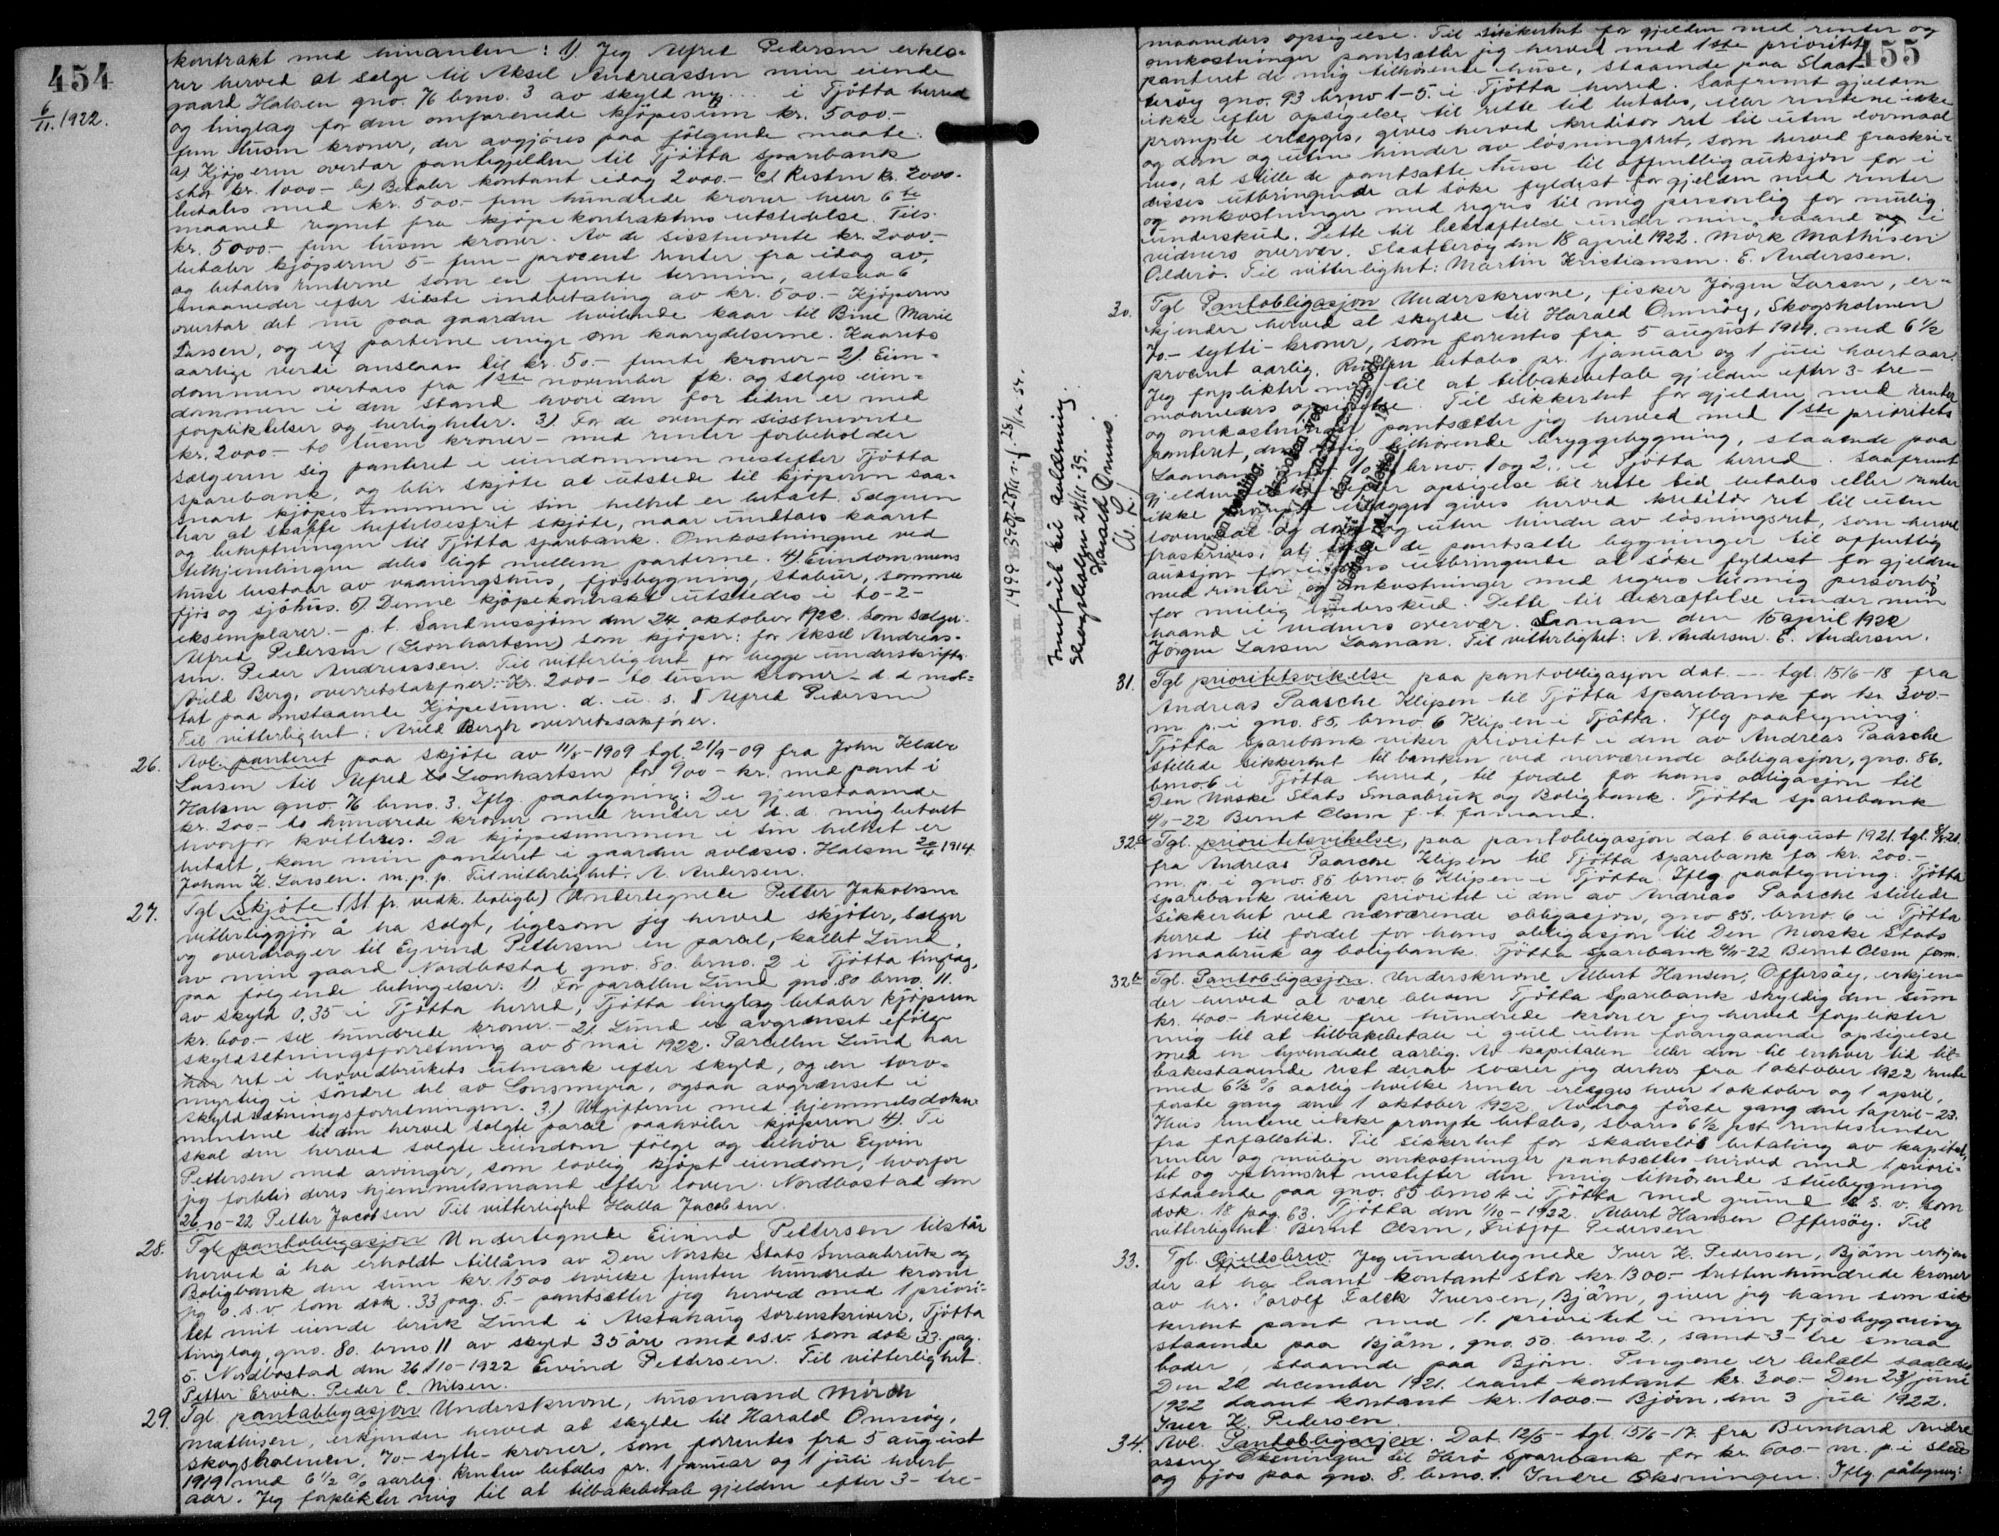 454
6/11.1922.
kontrakt med hinanden: 1) Jeg Alfred Pedersen erklæ-
rer herved at sælge til Aksel Andreassen min eiende
gaard Halsen gno. 76 brno. 3 av skyld ny ... i Tjötta herred
og tinglag for den omforenede kjöpesum kr. 5000.-
fem tusen kroner, der avgjöres paa fölgende maate:
a) Kjöperen overtar pantegjelden til Tjötta sparebank
stor kr. 1000- b) Betaler kontant idag 2000.- c) Resten kr. 2000.
betales med kr. 500.- fem hundrede kroner hver 6te
maaned regnet fra kjöpekontraktens utstedelse. Tils.
kr. 5000- fem tusen kroner. Av de sisstnevnte kr. 2000.-
betaler kjöperen 5- fem- procent renter fra idag av,
og betales renterne som en femte termin, altsaa 6
maaneder efter sidste indbetaling av kr. 500.- Kjöperen
overtar det nu paa gaarden hvilende kaar til Bine Marie
Larsen, og er parterne enige om kaarydelserne. Kaarets
aarlige verdi anslaaes til kr. 50.- femti kroner- 2) Eien-
dommen overtaes fra 1ste november fk. og sælges eien-
dommen i den stand hvori den for tiden er med
forpliktelser og herligheter. 3) For de ovenfor sisstnevnte
kr. 2000- to tusen kroner- med renter forbeholder
sælgeren sig panteret i eiendommen nestefter Tjötta
sparebank, og blir skjöte at utstede til kjöperen saa-
snart kjöpesummen i sin helhet er betalt. Sælgeren
har at skaffe heftelsesfrit skjöte, naar undtaes kaaret
og beheftningen til Tjötta sparebank. Omkostningene ved
tilhjemlingen deles ligt mellem parterne. 4) Eiendommens
huse bestaar av vaaningshus, fjösbygning, stabur, sommer
fjös og sjöhus. 5) Denne kjöpekontrakt utstedes i to-2-
eksemplarer.- p.t. Sandnessjöen den 24 oktober 1922. Som sælger:
Alfred Pedersen (Leonhartsen) som kjöper: for Aksel Andreas-
sen. Peder Andreassen. Til vitterlighet for begge underskrifter
Arild Berg, overretssakförer. Kr. 2000- to tusen kroner- d.d. mot-
tat paa omstaaende kjöpesum. d. u. s. Alfred Pedersen
Til vitterlighet: Arild Bergh overretssakförer.
26. Avl. panteret paa skjöte av 11/8-1909 tgl. 21/9-09 fra John
Larsen til Alfred Leonhartsen for 900- kr. med pant i
Halsen gno. 76 brno. 3. Iflg. paategning: De gjenstaaende
kr. 200- to hundrede kroner med renter er d.d. mig betalt
hvorfor kvitteres. Da kjöpesummen i sin helhet er
betalt, kan min panteret i gaarden avlæses. Halsen 20/4 1914
Johan K. Larsen. m.p.p. Til vitterlighet: A. Andersen.
27. Tgl. Skjöte (St. fr. vedk. boligb.) Undertegnede Petter Jakobsen
vitterliggjör å ha solgt, ligesom jeg herved skjöter, sælger
og overdrager til Eyvind Pettersen en parsel, kallet Lund,
av min gaard Nordbostad gno. 80. brno. 2 i Tjötta tinglag,
paa fölgende betingelser: 1) For parsellen Lund gno. 80 brno. 11.
av skyld 0,35 i Tjötta herred, Tjötta tinglag betaler kjöperen
kr. 600.- sex hundrede kroner.- 2) Lund er avgrænset efölge
skyldsetningsforretning av 5 mai 1922. Parsellen Lund har
har ret i hovedbrukets utmark efter skyld, og en torv-
myrteig i söndre del av Longmyra, ogsaa avgrænset i
skyldsætningsforretningen. 3.) Utgifterne med hjemmelsdoku-
menterne til den herved solgte parsel paahviler kjöperen 4) Ti
skal den herved solgte eiendom fölge og tilhöre Eyvin
Pettersen med arvinger, som lovlig kjöpt eiendom, hvorfor
jeg forblir deres hjemmelsmand efter loven. Nordbostad den
26.10-22 Petter Jacobsen Til vitterlighet Halla Jacobsen.
28. Tgl. pantobligasjon Undertegnede Eivind Pettersen tilstår
herved å ha erholdt tillåns av Den Norske Stats Smaabruk og
Boligbank den sum kr 1500 hvilke femten hundrede kroner
jeg o.s.v. som dok. 33 pag. 5.- pantsætter jeg herved med 1 priori-
tet mit eiende bruk Lund i Alstahaug sorenskriveri, Tjötta
tinglag, gno. 80. brno. 11 av skyld 35 åre med o.s.v. som dok 33. pag.
5. Nordbostad den 26/10-1922 Eivind Pettersen. Til vitterlighet.
Petter Ervik. Peder C. Nilsen.
29. Tgl. pantobligasjon Underskrevne, husmand Mörch
Mathisen, erkjender herved at skylde til Harald Önnöy,
Skogsholmen, 70- sytti- kroner, som forrentes fra 5 august
1919 med 6 1/2 % aarlig. Renten betales pr. 1 januar og 1 juli hvert
aar. Jeg forplikter mig til at tilbakebetale gjelden efter 3- tre-
455
maaneders opsigelse. Til sikkerhet for gjelden med renter og
omkostninger pantsætter jeg herved med 1ste prioritet
panteret de mig tilhörende huse, staaende paa Slaat-
teröy gno. 93 brno 1-5. i Tjötta herred. Saafremt gjelden
ikke efter opsigelse til rette tid betales, eller rentene ikke
prompte erlægges, gives herved kreditor ret til uten lovmaal
og dom og uten hinder av lösningsret, som herved fraskri-
ves, at stille de pantsatte huse til offentlig auksjon for i
disses utbringende at söke fyldest for gjelden med renter
og omkostninger med regres til mig personlig for mulig
underskud. Dette til bekræftelse under min haand og i
vidners overvær. Slaatteröy den 18 april 1922. Mörk Mathisen
Olderö. Til vitterlighet: Martin Kristiansen. E. Anderssen.
30. Tgl Pantobligasjon Underskrevne, fisker Jörgen Larsen, er-
kjender herved at skylde til Harald Önnöy, Skogsholmen
70- sytti- kroner, som forrentes fra 5 august 1919, med 6 1/2
procent aarlig. Renten betales pr. 1 januar og 1 juli hvert aar.
Jeg forplikter mig til at tilbakebetale gjelden efter 3- tre-
maaneders opsigelse. Til sikkerhet for gjelden med renter
og omkostninger pantsætter jeg herved med 1ste prioritets
panteret, den mig tilhörende bryggebygning, staaende paa
Laanan brno. 1 og 2. i Tjötta herred Saafremt
gjelden ikke efter opsigelse til rette tid betales eller renter
ikke prompte erlægges gives herved kreditor ret til uten
lovmaal og dom og uten hinder av lösningsret, som herved
fraskrives, at stille de pantsatte bygninger til offentlig
auksjon for i dens utbringende at söke fyldest for gjelden
med renter og omkostninger med regres til mig personlig
for mulig underskud. Dette til bekræftelse under min
haand i vidners overvær. Laanan den 15 april 1922
Jörgen Larsen Laanan. Til vitterlighet: A. Andersen. E. Andersen.
31. Tgl prioritetsvikelse paa pantobligasjon dat. --- tgl. 15/6-18 fra
Andreas Paasche Klipen til Tjötta sparebank for kr. 300.-
m. p. i gno. 85. brno. 6 Klipen i Tjötta. Iflg paategning:
Tjötta sparebank viker prioritet i den av Andreas Paasche
stillede sikkerhet til banken ved nærværende obligasjon, gno. 86.
brno. 6 i Tjötta herred, til fordel for hans obligasjon til
Den Norske Stats Smaabruk og Boligbank. Tjötta sparebank
4/11-22 Bernt Olsen f.t. formand.
32a Tgl. prioritetsvikelse, paa pantobligasjon dat. 6 august 1921. tgl. 8/8-21.
fra Andreas Paasche Klipen til Tjötta sparebank for kr. 200.-
m. p. i gno. 85 brno. 6 Klipen i Tjötta. Iflg. paategning: Tjötta
sparebank viker prioritet i den av Andreas Paasche stillede
sikkerhet ved nærværende obligasjon, gno 85. brno. 6 i Tjötta
herred til fordel for hans obligasjon til Den Norske Stats
smaabruk og boligbank. Tjötta sparebank 4/11-22 Bernt Olsen form.
32b Tgl. Pantobligasjon. Underskrevne Albert Hansen, Offersöy, erkjen-
der herved at være bleven Tjötta Sparebank skyldig den sum
kr. 400- hvilke fire hundrede kroner jeg herved forplikter
mig til at tilbakebetale i guld uten forangaaende opsigelse
med en tyvendedel aarlig. Av kapitalen eller den til enhver tid til-
bakestaaende rest derav svarer jeg derhos fra 1 oktober 1922 rente
med 6 1/2 % aarlig hvilke renter erlægges hver 1 oktober og 1 april,
förste gang den 1 oktober 1922 Avdrag förste gang den 1 april-23.
Hvis rentene ikke prompte betales, svares 6 1/2 pct rentesrenter
fra forfaldstid. Til sikkerhet for skadeslös betaling av kapital,
renter og mulige omkostninger pantsættes herved med 1 priori-
tet og nestefter den mig tilhörende stuebygning
staaende paa gno. 85 brno 4 i Tjötta med grund o. s. v. som
dok. 18 pag. 63. Tjötta den 1/10-1922. Albert Hansen Offersöy. Til
vitterlighet: Bernt Olsen, Fritjof Pedersen
33. Tgl. Gjeldsbrev. Jeg undertegnede Iver K. Pedersen, Björn erkjen
der at ha laant kontant stor kr. 1300.- trettenhundrede kroner
av hr. Torolf Falck Iversen, Björn, giver jeg ham som sik
kerhet pant med 1. prioritet i min fjösbygning
staaende paa Björn, gno. 50. brno. 2, samt 3- tre smaa
boder, staaende paa Björn. Pengene er betalt saaledes
Den 22 december 1921. laant kontant kr. 300.- Den 23 juni
1922 laant kontant kr. 1000.- Björn, den 3 juli 1922.
Iver K. Pedersen.
34. Avl. Pantobligasjon. Dat. 12/5- tgl 15/6-17. fra Bernhard Andre
assen Öksningen til Herö Sparebank for kr. 600.- m. p. i
og fjös paa gno. 8. brno. 1. Indre Öksningen. Iflg. påtegning:
Innfriet til avlæsning.
Skogsholmen 24/11-39.
Harald Önnö